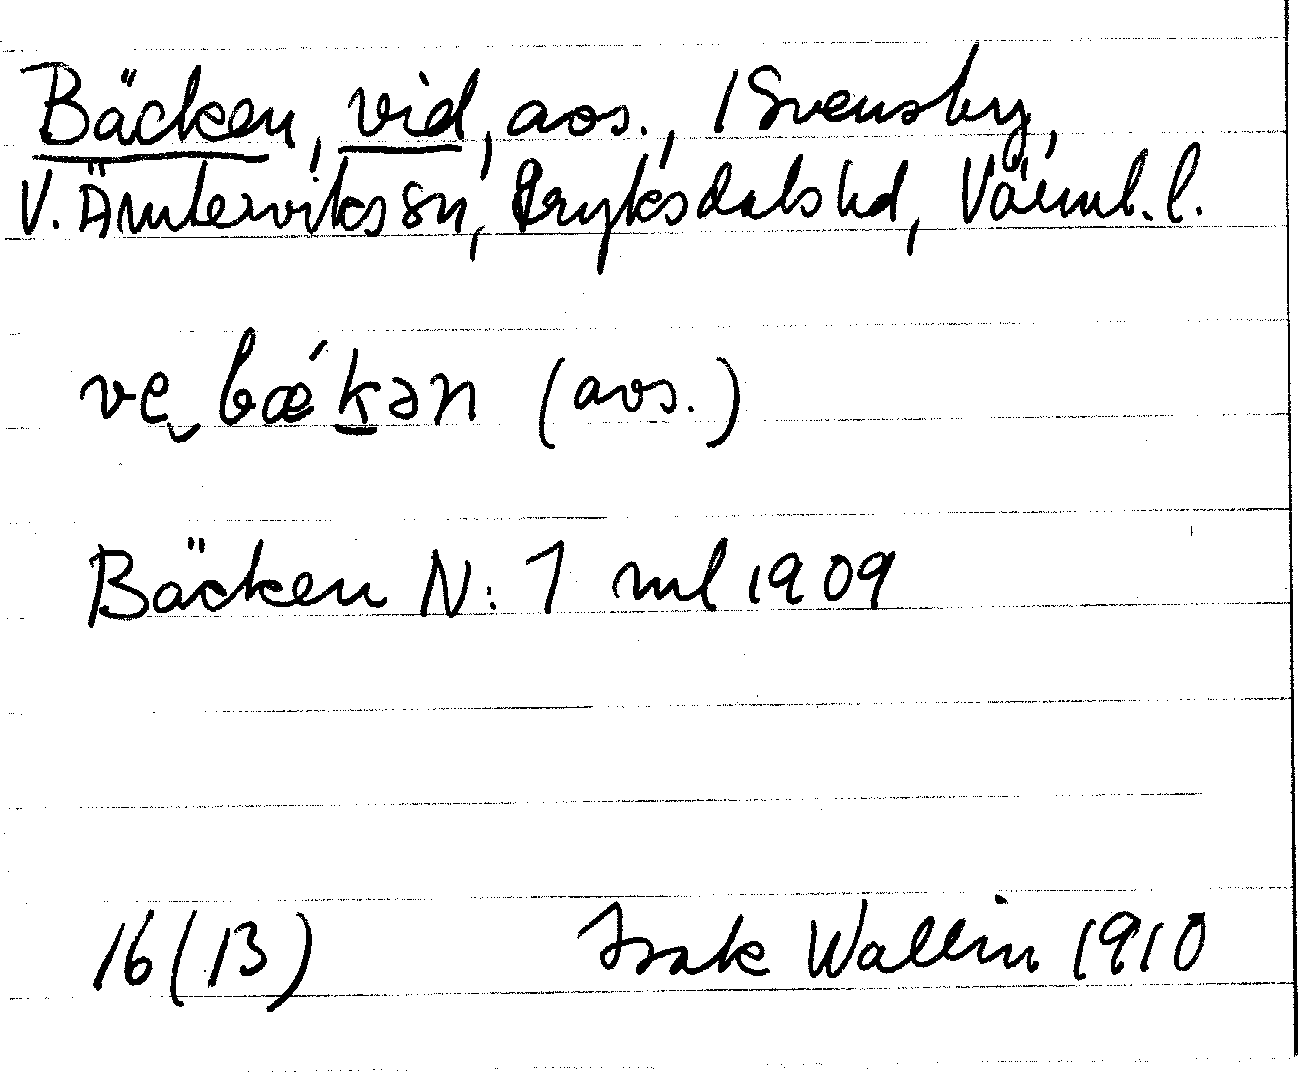 Bäcken, vid, aos., 1 Svensby,
V. Ämterviks sn, Fryksdals hd, Värml. l.
ve̮ bǽk̲ən (aos.)
Bäcken N: 1 ml 1909
16 (13) Isak Wallin 1910